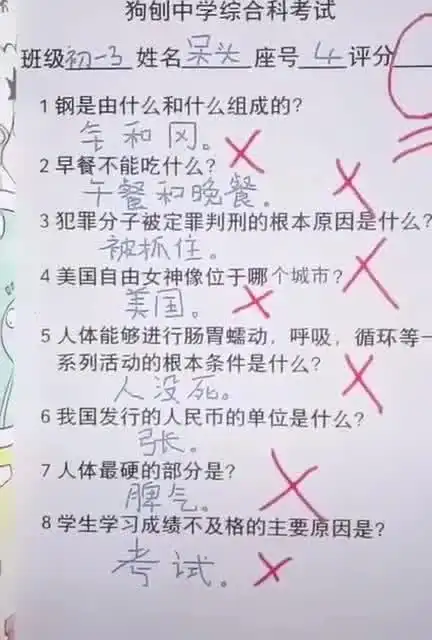 狗刨中学综合科考试
班级初一3 姓名呆头 座号4 评分
1 钢是由什么和什么组成的?
钅和冈。
2 早餐不能吃什么?
午餐和晚餐。
3 犯罪分子被定罪判刑的根本原因是什么?
被抓住。
4 美国自由女神像位于哪个城市?
美国。
5 人体能够进行肠胃蠕动，呼吸，循环等一
系列活动的根本条件是什么?
人没死。
6 我国发行的人民币的单位是什么?
弓长。
7 人体最硬的部分是?
脾气。
8 学生学习成绩不及格的主要原因是?
考试。